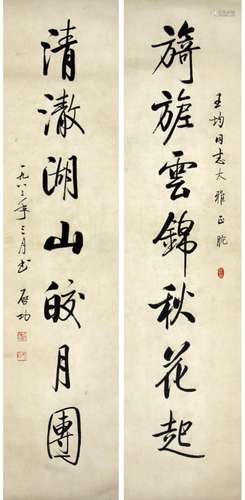 旖旎雲錦秋花起
王均同志大雅正腕
清澈湖山皎月團
一九八三年三月書 启功